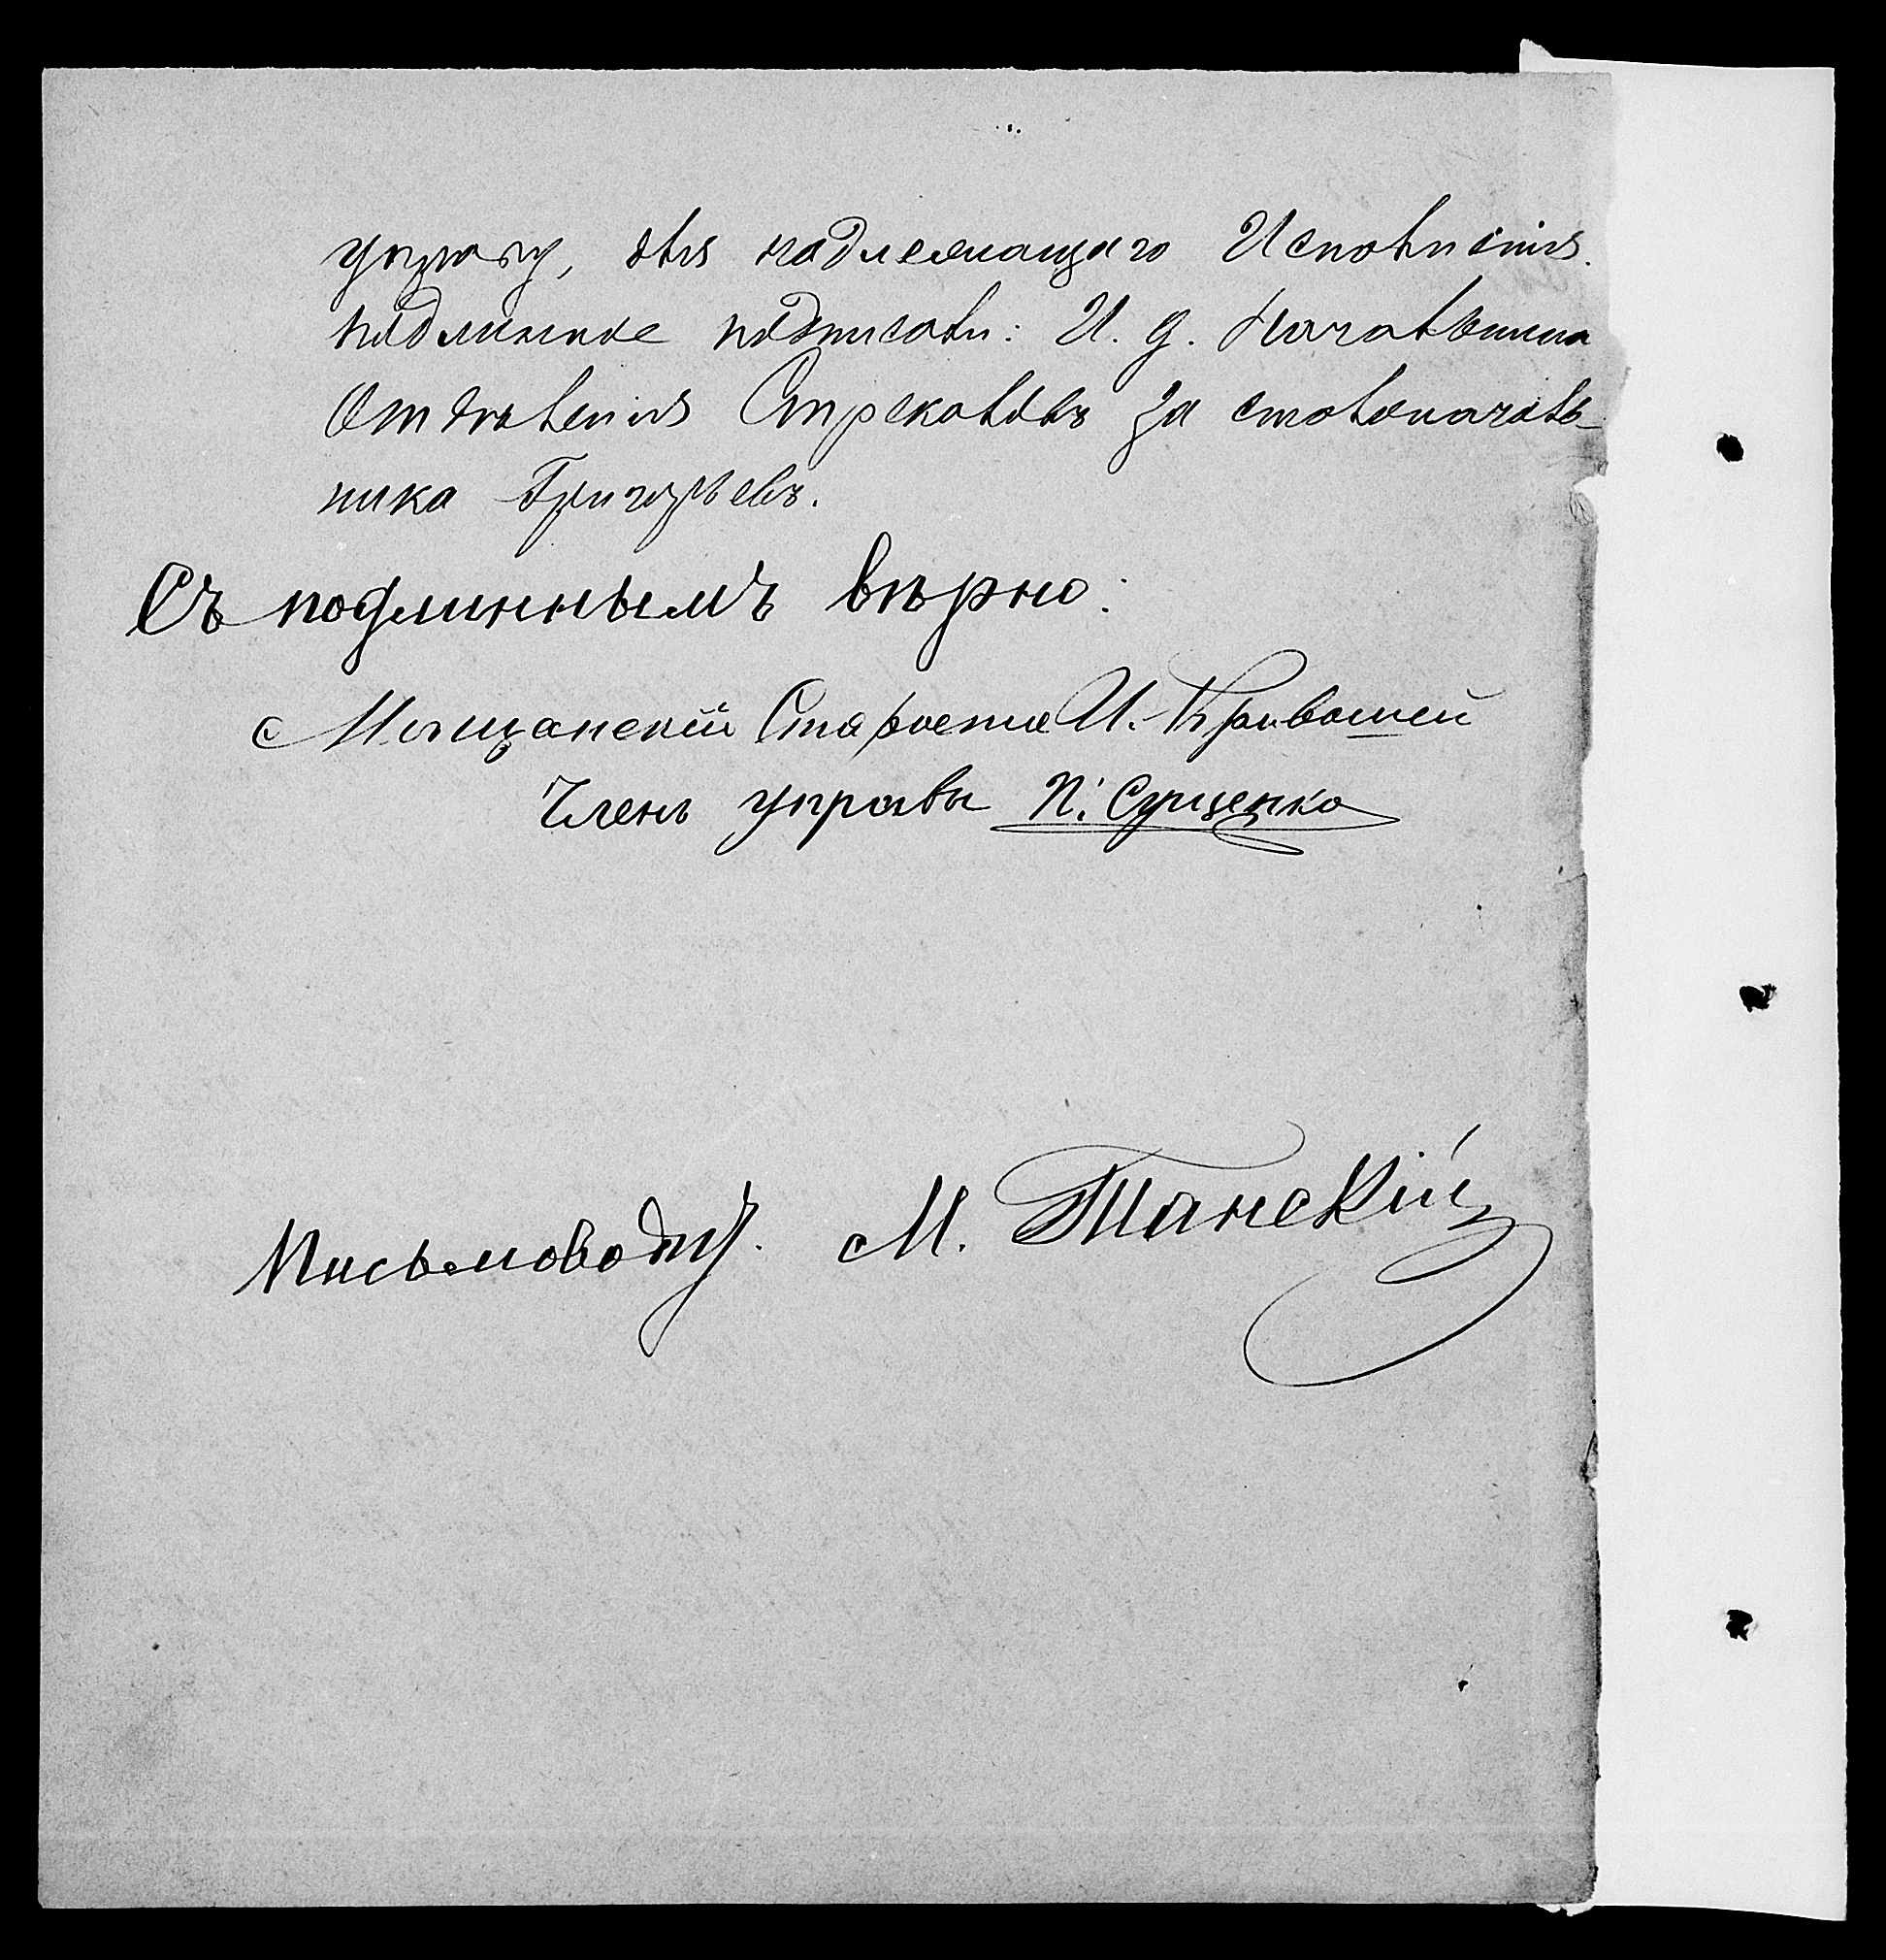 управу, для надлежащаго Исполненія.
подлинное подписали: И. д. Начальника
Отдѣленія Стрекаловъ за столоначаль-
ника Григорьевъ.
Съ подлиннымъ вѣрно:
Мѣщанскій Староста И. Кривошей
Членъ управы П. Сущенко
Письмовод. М. Танскій